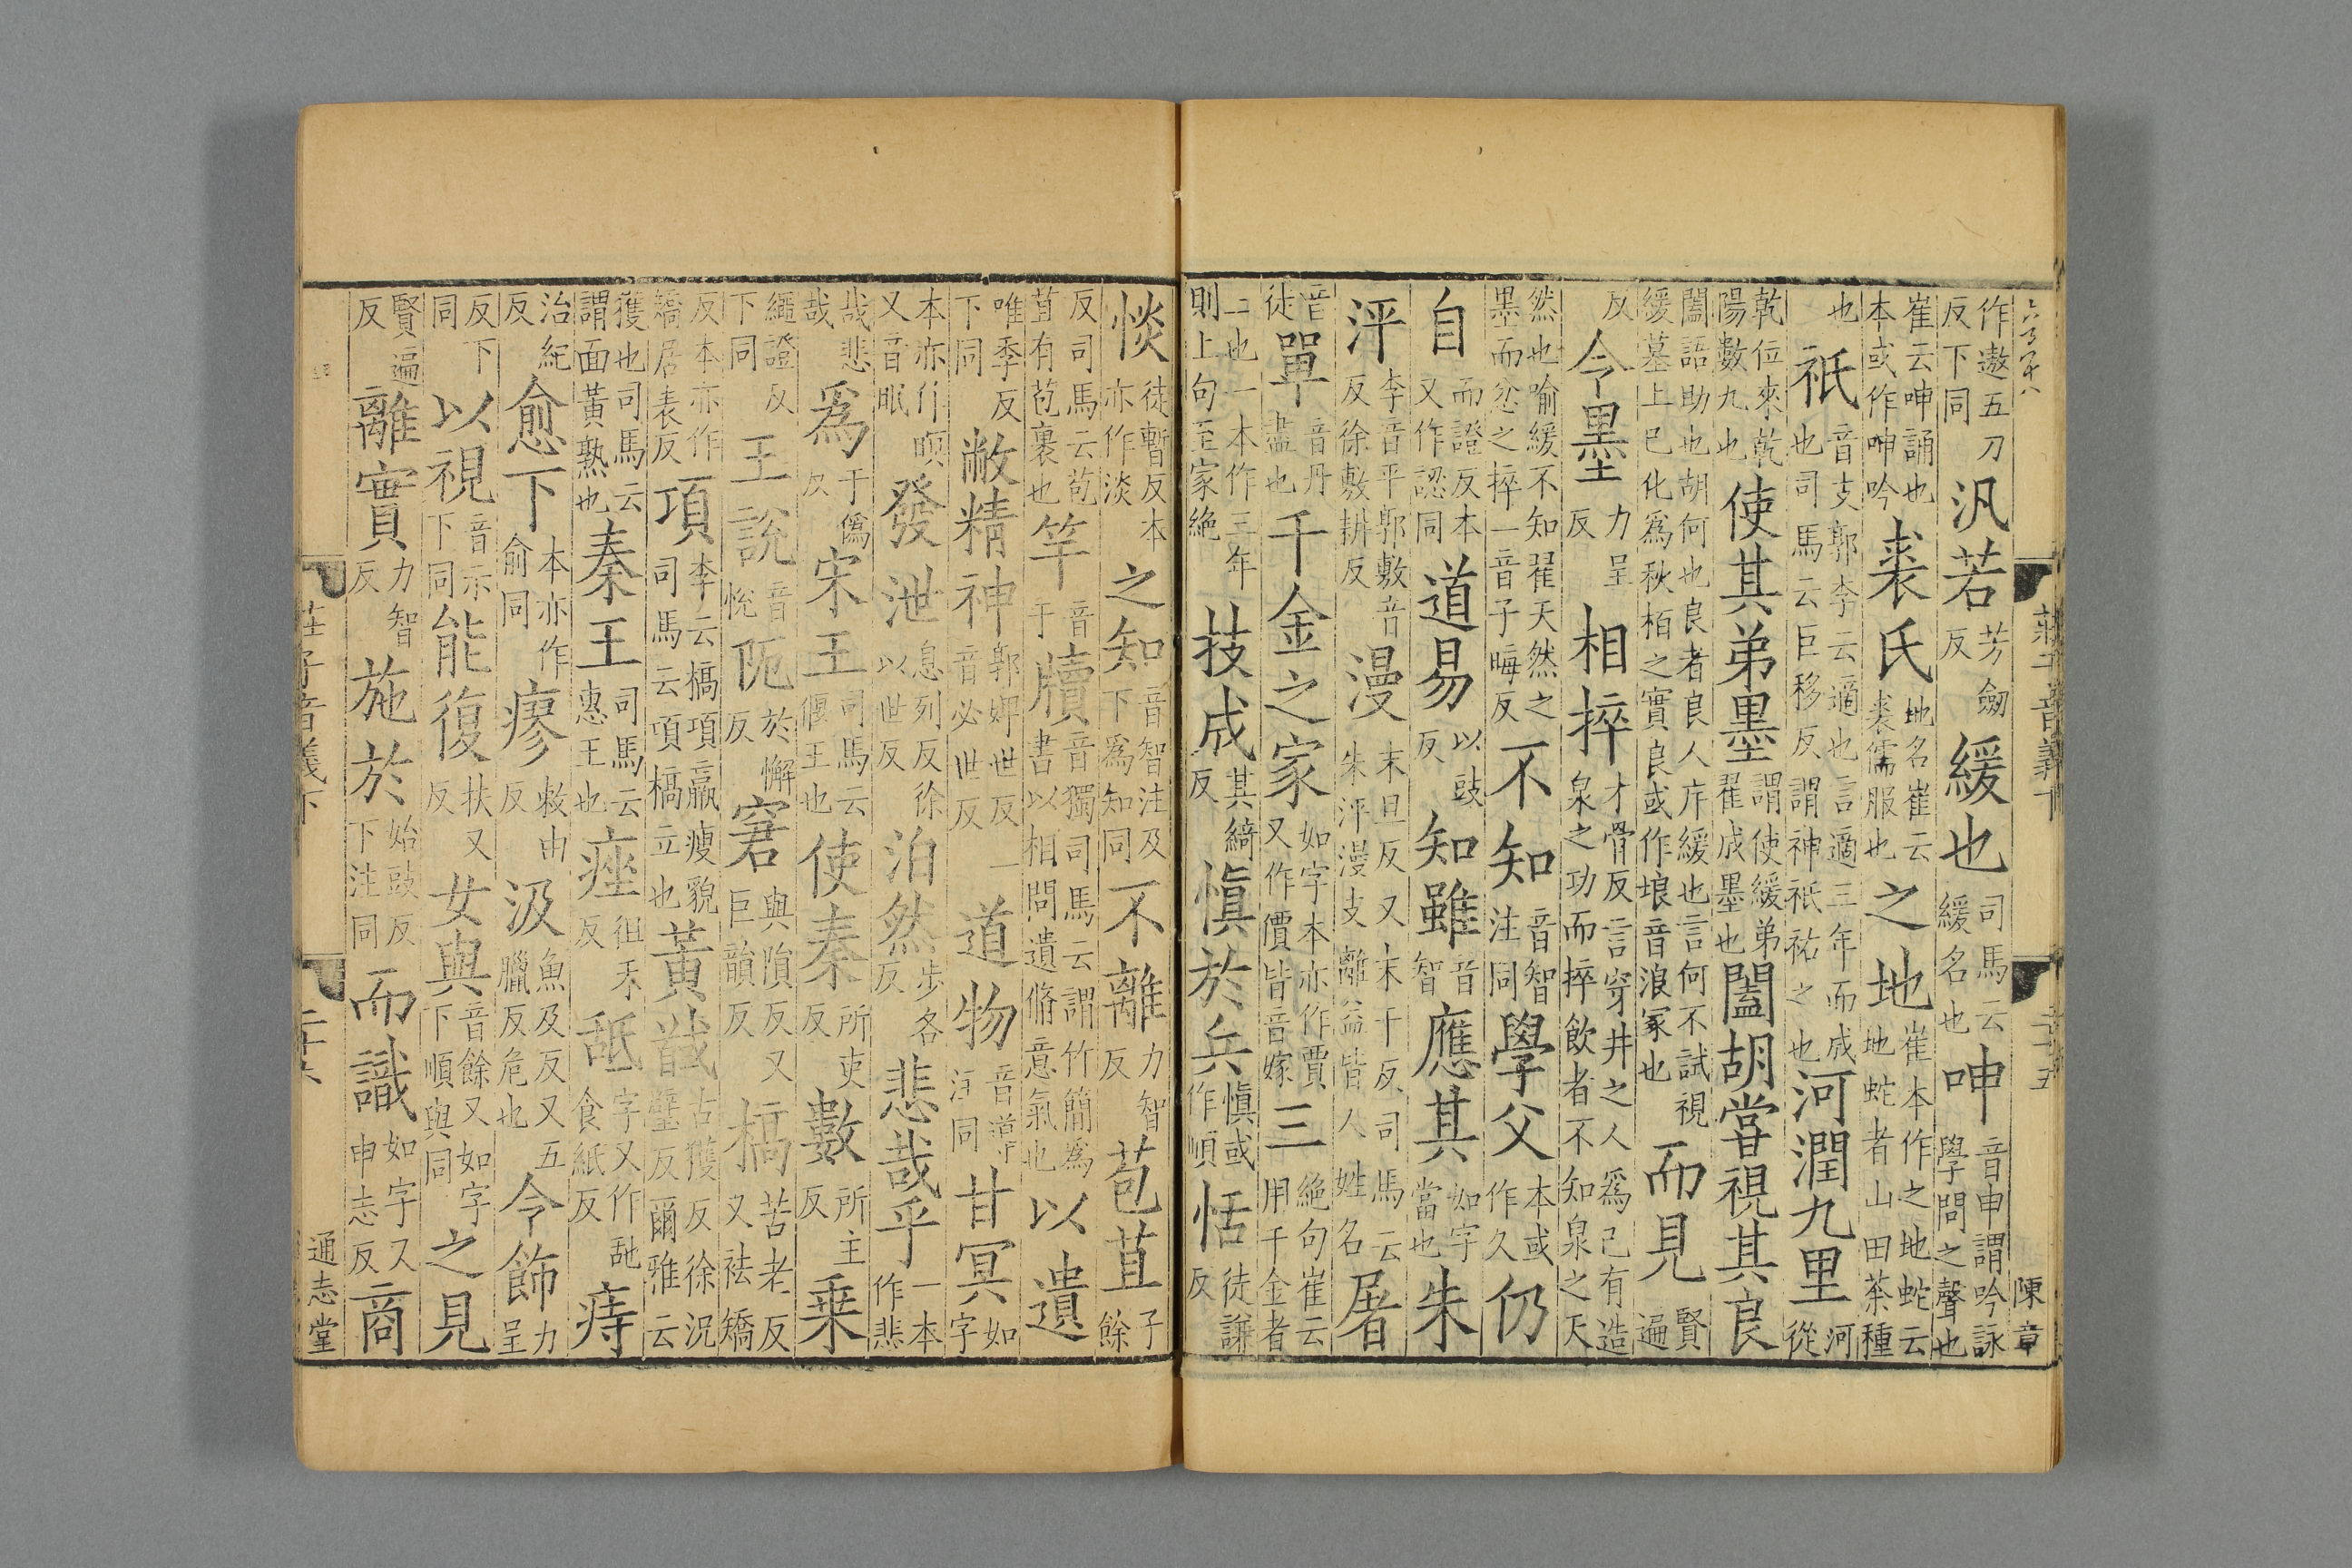 作遨五刀反下同 汎若芳劒反 緩也司馬云緩名也 呻音申謂吟詠學問之聲也
崔云呻誦也本或作呻吟 裘氏地名崔云裘儒服也 之地崔本作之地蛇云地蛇者山田茶種
也 祇音支郭李云適也言適三年而成也司馬云巨移反謂神祇祐之也 河潤九里河從
乾位來乾陽數九也 使其弟墨謂使緩弟翟成墨也 闔胡嘗視其良
闔語助也胡何也良者良人斥緩也言何不試視緩墓上已化爲秋栢之實良或作埌音浪冢也 而見賢遍
反 令墨力呈反 相捽才骨反言穿井之人爲己有造泉之功而捽飲者不知泉之天
然也喻緩不知翟天然之墨而忿之捽一音子晦反 不知音智注同 學父本或作久 仍
自而證反本又作認同 道易以豉反 知雖音智 應其如字當也 朱
泙李音平郭敷音反徐敷耕反 漫末旦反又末干反司馬云朱泙漫支離益皆人姓名 屠
音徒 單音丹盡也 千金之家如字本亦作賈又作價皆音嫁 三絶句崔云用千金者
二也一本作三年則上句至家絶 技成其綺反 愼於兵愼或作順 恬徒謙反
惔徒暫反本亦作淡 之知音智注及下爲知同 不離力智反 苞苴子餘
反司馬云苞苴有苞裹也 竿音干 牘音獨司馬云謂竹簡爲書以相問遺脩意氣也 以遺
唯季反下同 敝精神郭婢世反一音必世反 道物音導注同 甘冥如字
本亦作瞑又音眠 發泄息列反徐以世反 泊然步各反 悲哉乎一本作悲
哉悲哉 爲于僞反 宋王司馬云偃王也 使秦所吏反 數所主反 乗
繩證反下同 王說音悅 阨於懈反 窘與隕反又巨韻反 槁苦老反又袪矯
反本亦作矯居表反 項李云槁項羸瘦貌司馬云項槁立也 黃馘古獲反徐況璧反爾雅云
獲也司馬云謂面黃熟也 秦王司馬云惠王也 痤徂禾反 舐字又作䑛食紙反 痔
治紀反 愈下本亦作俞同 瘳敕由反 汲魚及反又五臘反危也 令飾力呈
反下同 以視音示下同 能復扶又反 女與音餘又如字下順與同 之見
賢遍反 離實力智反 施於始豉反下注同 而識如字又申志反 商
通志堂